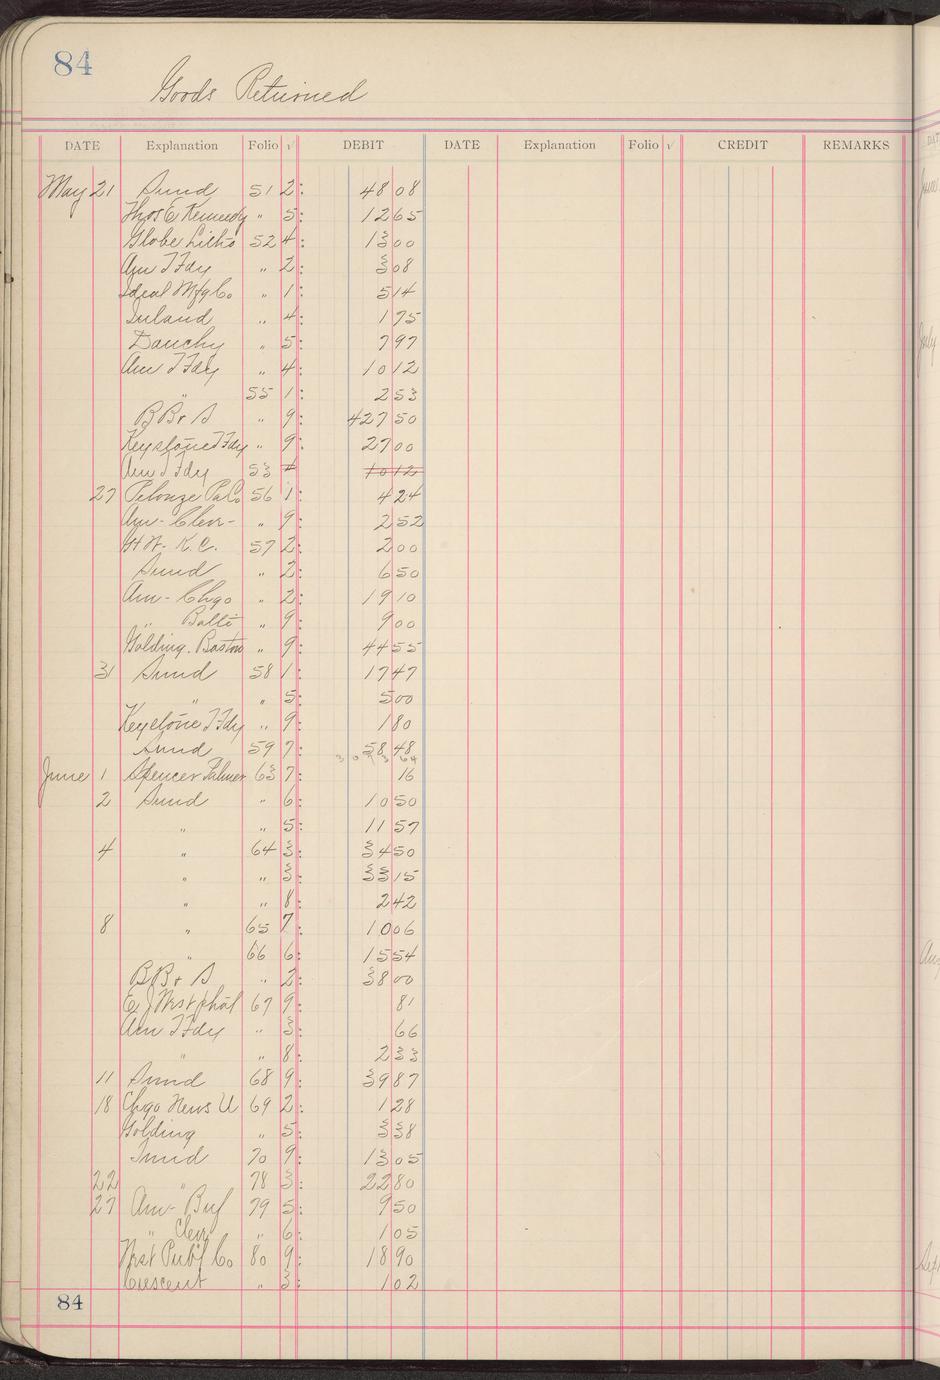 84
Goods Returned
DATE Explanation Folio √ DEBIT DATE Explanation Folio √ CREDIT REMARKS
May 21 Sund 51 2: 48 08
Thos E Kennedy " 5: 12 65
Globe Litho 52 4: 13 00
Am T Fdy " 2: 3 08
Ideal Mfg Co " 1: 5 14
Inland " 4: 1 75
Dauchy " 5: 7 97
Am T Fdy " 4: 10 12
" 55 1: 2 53
BB & S " 9: 427 50
Keystone T Fdy " 9: 27 00
Am T Fdy 53 4 10 12
27 Pelouze Pa Co 56 1: 4 24
Am - Clev - " 9: 2 52
Gt W. K. C. 57 2: 2 00
Sund " 2: 6 50
Am - Chgo " 2: 19 10
" Balto " 9: 9 00
Golding. Boston " 9: 44 55
31 Sund 58 1: 17 47
" " 5: 5 00
Keystone T Fdy " 9: 1 80
Sund 59 7: 58 48
June 1 Spencer Palmer 63 7: 16
2 Sund " 6: 10 50
" " 5: 11 57
4 " 64 3: 34 50
" " 3: 33 15
" " 8: 2 42
8 " 65 7: 10 06
" 66 6: 15 54
BB & S " 2: 38 00
E J Westphal 67 9: 81
Am T Fdy " 3: 66
" " 8: 2 33
11 Sund 68 9: 39 87
18 Chgo News U 69 2: 1 28
Golding " 5: 3 38
Sund 70 9: 13 05
22 " 78 3: 22 80
27 Am - Buf 79 5: 9 50
" Clev " 6: 1 05
West Publ Co 80 9: 18 90
Crescent " 3: 1 02
84